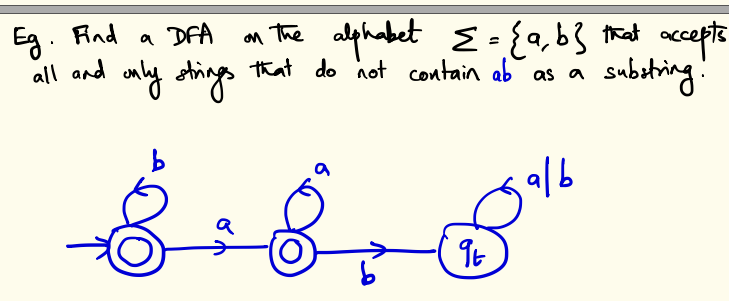 Eg. Find a DFA on the alphabet Σ = {a, b} that accepts
all and only strings that do not contain ab as a substring.
b
a
a|b
a
b
qt